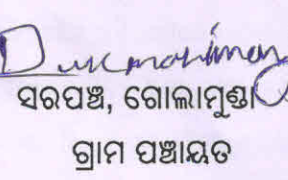 ସରପଞ୍ଚ, ଗୋଲାମୁଣ୍ଡା
ଗ୍ରାମ ପଞ୍ଚାୟତ